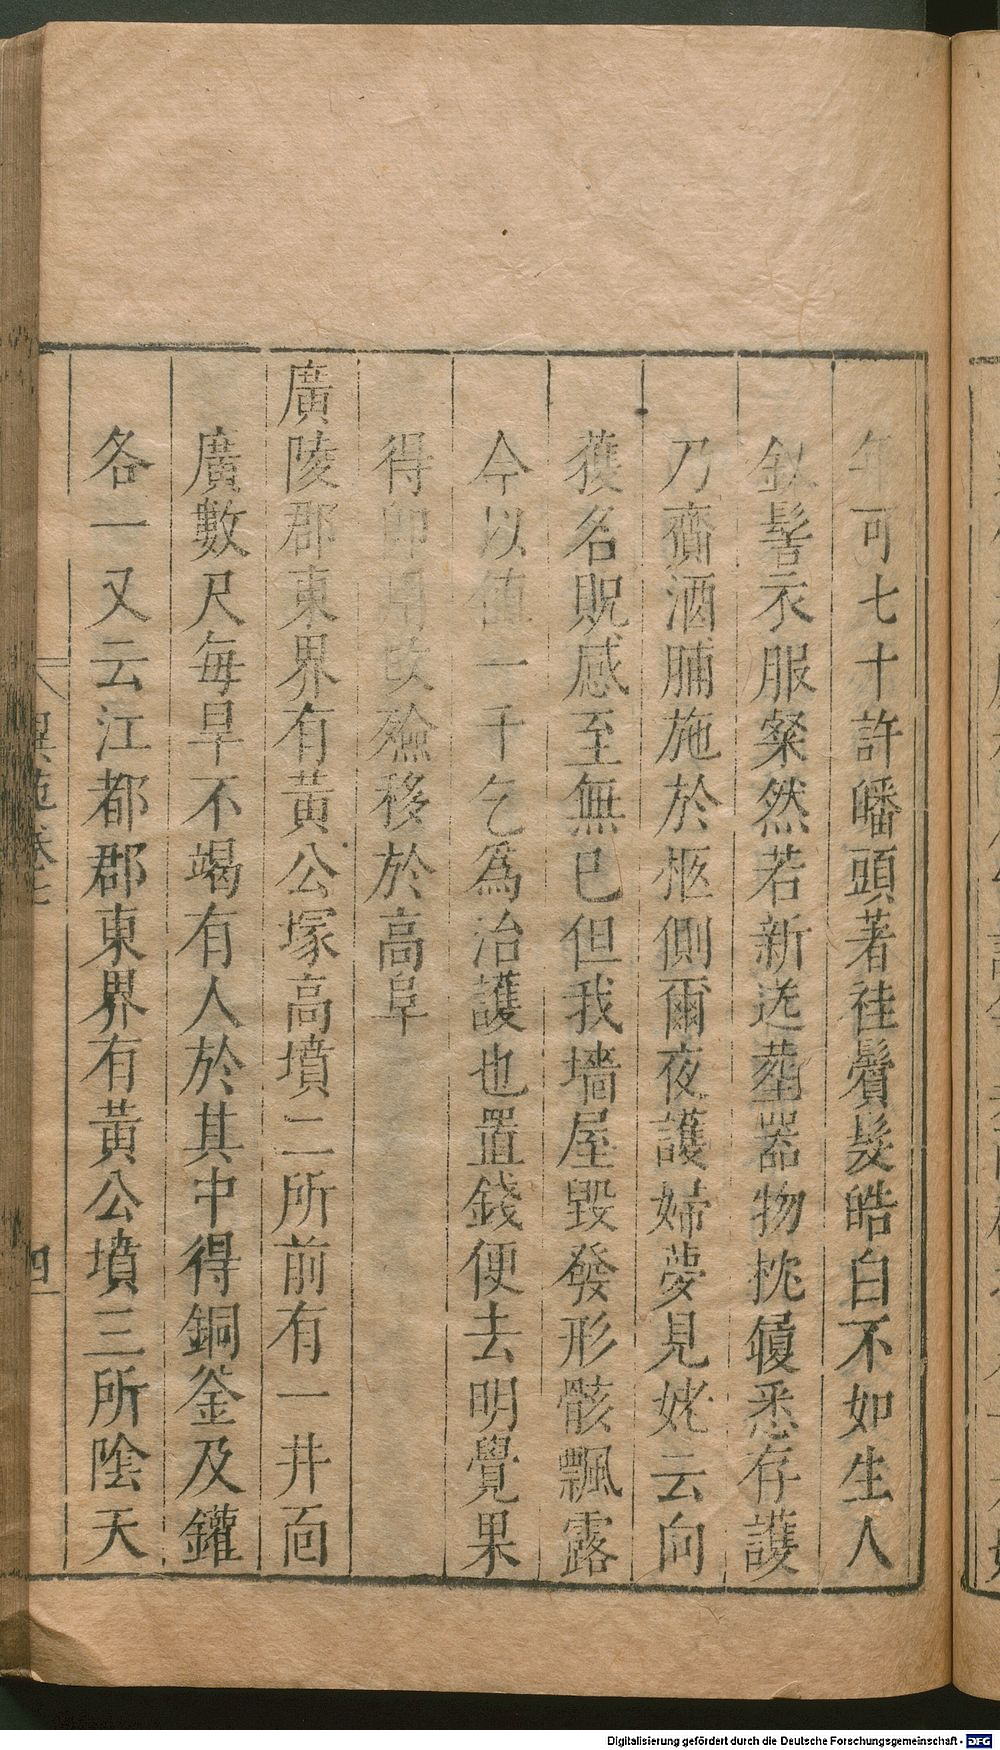 年可七十許皤頭著袿鬢髮皓白不如生人
釵髻衣服粲然若新送葬器物枕履悉存護
乃齎酒脯施於柩側爾夜護婦夢見姥云向
獲名貺感至無已但我墻屋毀發形骸飄露
今以値一千乞爲治護也置錢便去明覺果
得卽改殮移於高阜
廣陵郡東界有黃公塚高墳二所前有一井面
廣數尺每旱不竭有人於其中得銅釜及鑵
各一又云江都郡東界有黃公墳三所隂天
異苑卷七
四
Digitalisierung gefördert durch die Deutsche Forschungsgemeinschaft - DFG